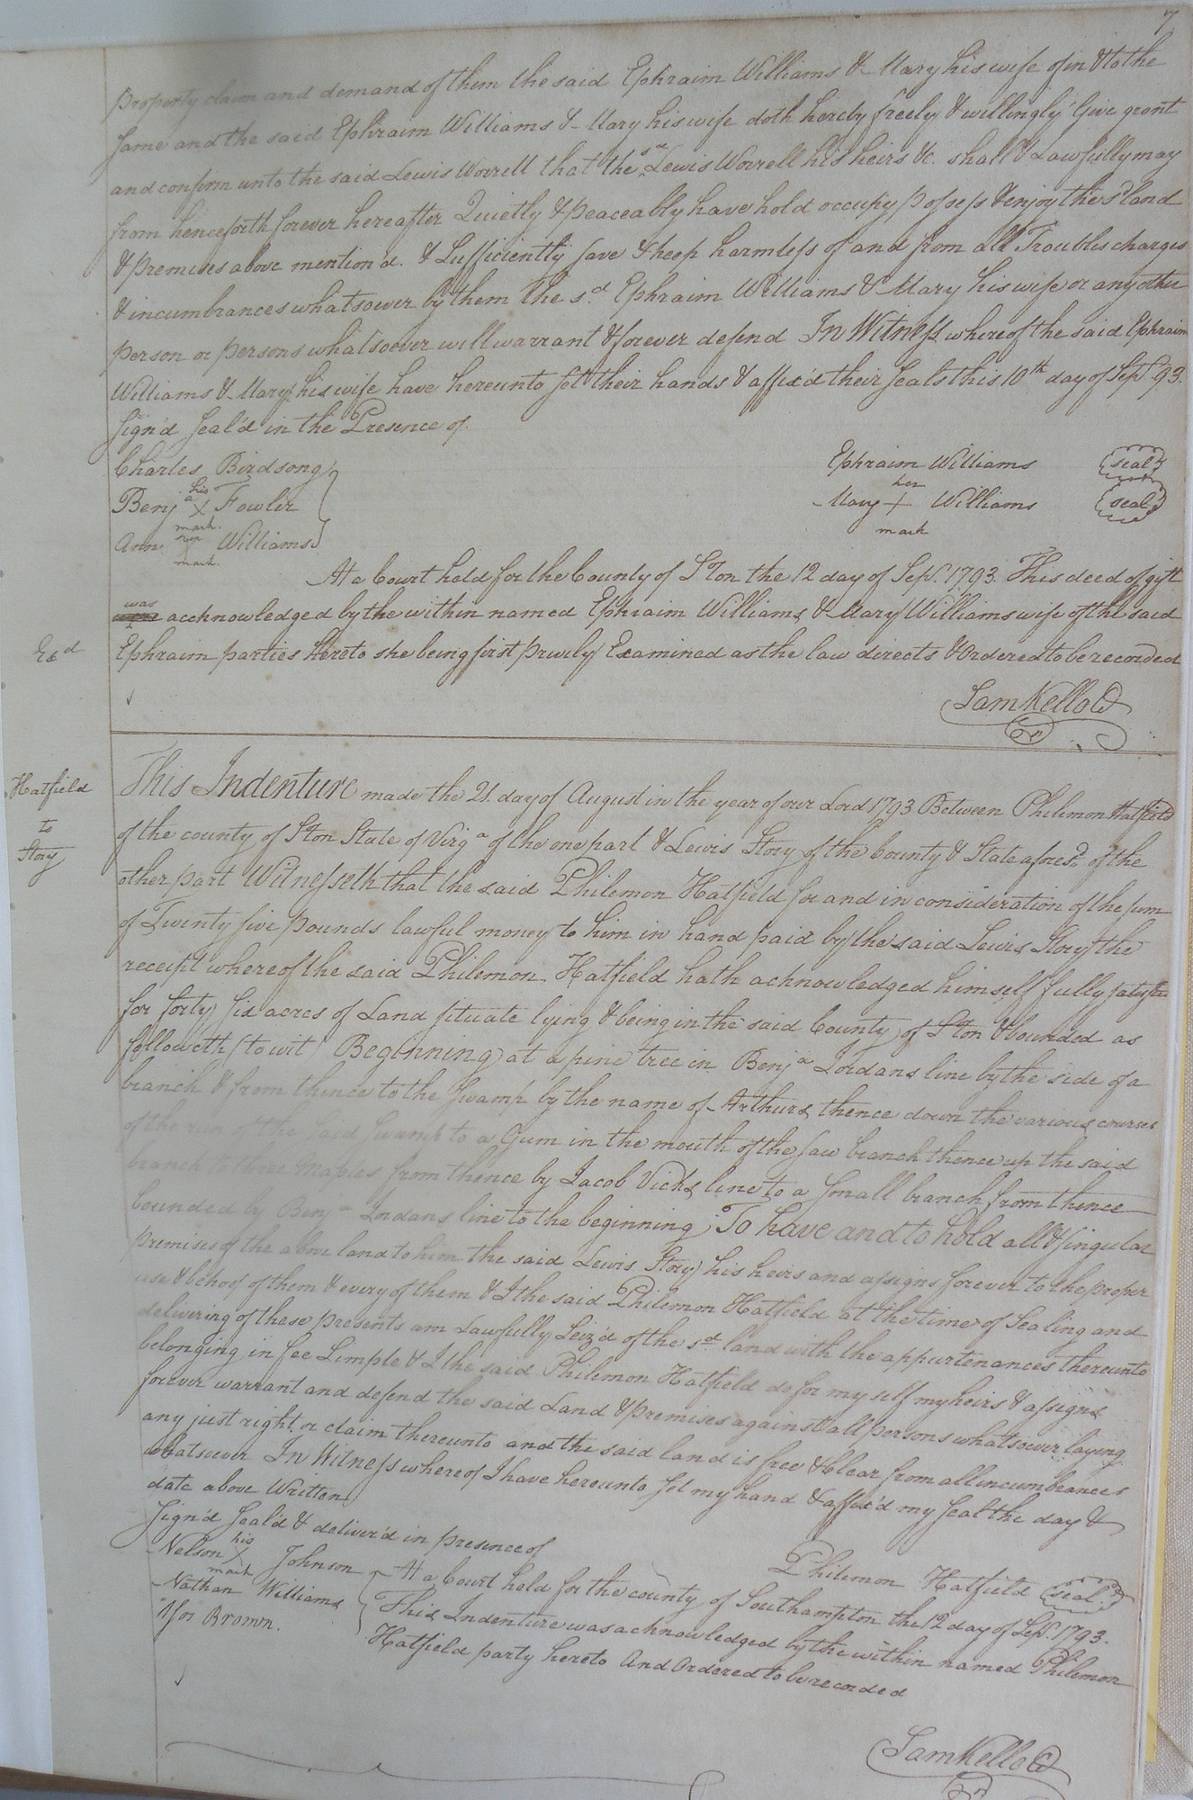 7
Property claim and demand of them the said Ephraim Williams & Mary his wife of in & to the
same and the said Ephraim Williams & Mary his wife doth hereby freely & willingly Give grant
and confirm unto the said Lewis Worrell that the sd Lewis Worrell his heirs &c. shall & Lawfully may
from henceforth forever hereafter Quietly & peaceably have hold occupy possess & enjoy the sd land
& premises above mention'd. & Sufficiently save & keep harmless of and from all Troubles charges
& incumbrances whatsoever by them the sd Ephraim Williams & Mary his wife or any other
person or persons whatsoever will warrant & forever defend In Witness whereof the said Ephraim
Williams & Mary his wife have hereunto set their hands & affix'd their seals this 10th day of Sept. 93.
Sign'd Seal'd in the Presence of
Charles Birdsong
Ephraim Williams seal
Benja his X mark Fowler
Mary her + mark Williams seal
Ann her X mark Williams
At a Court held for the County of S'ton the 12 day of Sept. 1793. This deed of gift
was acknowledged by the within named Ephraim Williams & Mary Williams wife of the said
Exd
Ephraim parties hereto she being first privily Examined as the law directs & Ordered to be recorded
Sam Kello
Hatfield
to
Story
This Indenture made the 21. day of August in the year of our Lord 1793 Between Philemon Hatfield
of the county of S'ton State of Virga of the one part & Lewis Story of the County & State aforesd. of the
other part Witnesseth that the said Philemon Hatfield for and in consideration of the sum
of Twenty five pounds lawful money to him in hand paid by the said Lewis Story the
receipt whereof the said Philemon Hatfield hath acknowledged himself fully satisfied
for forty six acres of Land situate lying & being in the said County of S'ton & bounded as
followeth (to wit) Beginning at a pine tree in Benja Jordans line by the side of a
branch & from thence to the swamp by the name of Arthurs, thence down the various courses
of the said swamp to a Gum in the mouth of the saw branch thence up the said
branch Maples from thence by Jacob Vicks line to a small branch from thence
bounded by Benja Jordans line to the beginning To have and to hold all & singular
premises of the above land to him the said Lewis Story his heirs and assigns forever to the proper
use & behoof of them & every of them & I the said Philemon Hatfield at the time of Sealing and
delivering of these presents am Lawfully Seiz'd of the sd land with the appurtenances thereunto
belonging in fee Simple & I the said Philemon Hatfield do for my self my heirs & assigns
forever warrant and defend the said Land & premises against all persons whatsoever laying
any just right or claim thereunto and the said land is free & Clear from all incumbrances
whatsoever In Witness whereof I have hereunto set my hand & affix'd my seal the day &
date above Written
Sign'd Seal'd & deliver'd in presence of
Philemon Hatfield seal
Nelson his X mark Johnson
Nathan Williams
Brown.
At a Court held for the county of Southampton the 12 day of Sept. 1793.
This Indenture was acknowledged by the within named Philemon
Hatfield party hereto And Ordered to be recorded
Sam Kello